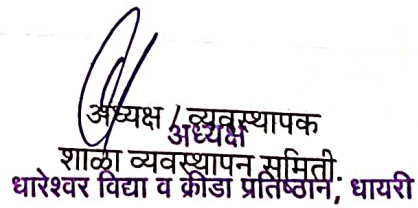 अध्यक्ष / व्यवस्थापक
अध्यक्ष
शाळा व्यवस्थापन समिती.
धारेश्वर विद्या व क्रीडा प्रतिष्ठान, धायरी